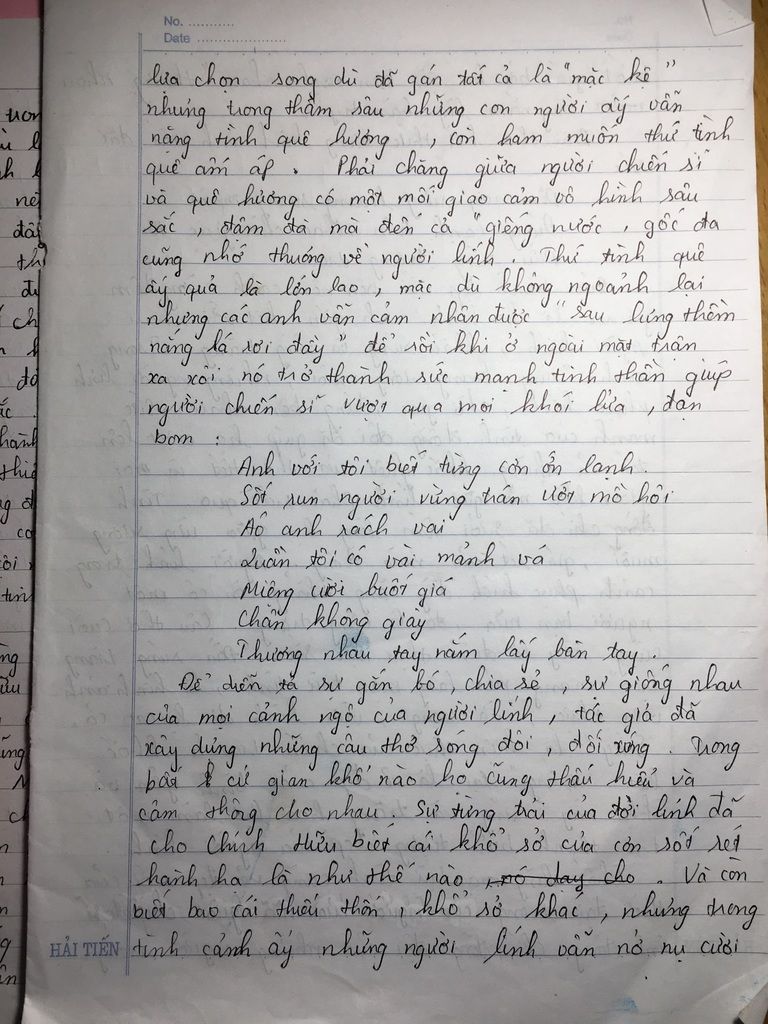 No. ...........
Date .......................
lựa chọn song dù đã gán tất cả là "mặc kệ"
nhưng trong thâm sâu những con người ấy vẫn
nặng tình quê hương, còn ham muốn thứ tình
quê ấm áp. Phải chăng giữa người chiến sĩ
và quê hương có một mối giao cảm vô hình sâu
sắc, đậm đà mà đến cả "giếng nước, gốc đa
cũng nhớ thương về người lính. Thứ tình quê
ấy quả là lớn lao, mặc dù không ngoảnh lại
nhưng các anh vẫn cảm nhận được "sau lưng thềm
nắng lá rơi đầy" để rồi khi ở ngoài mặt trận
xa xôi nó trở thành sức mạnh tinh thần giúp
người chiến sĩ vượt qua mọi khói lửa, đạn
bom :
Anh với tôi biết từng cơn ớn lạnh.
Sốt run người vừng trán ướt mồ hôi
Aó anh rách vai
Quần tôi có vài mảnh vá
Miệng cười buốt giá
Chân không giày
Thương nhau tay nắm lấy bàn tay.
Để diễn tả sự gắn bó, chia sẻ, sự giống nhau
của mọi cảnh ngộ của người lính, tác giả đã
xây dựng những câu thơ sóng đôi, đối xứng. Trong
bất cứ gian khổ nào họ cũng thấu hiểu và
cảm thông cho nhau. Sự từng trải của đời lính đã
cho Chính Hữu biết cái khổ sở của cơn sốt rét
hành hạ là như thế nào, nó day cho. Và còn
biết bao cái thiếu thốn, khổ sở khác, nhưng trong
HẢI TIẾN tình cảnh ấy những người lính vẫn nở nụ cười